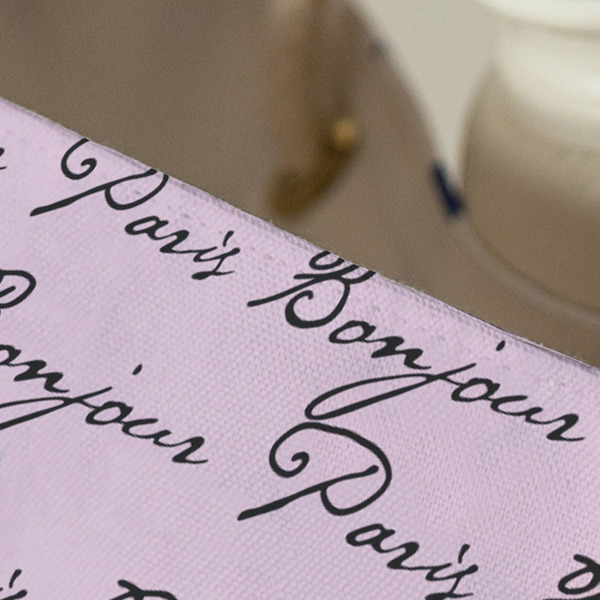 Paris Bonjour
Bonjour Paris